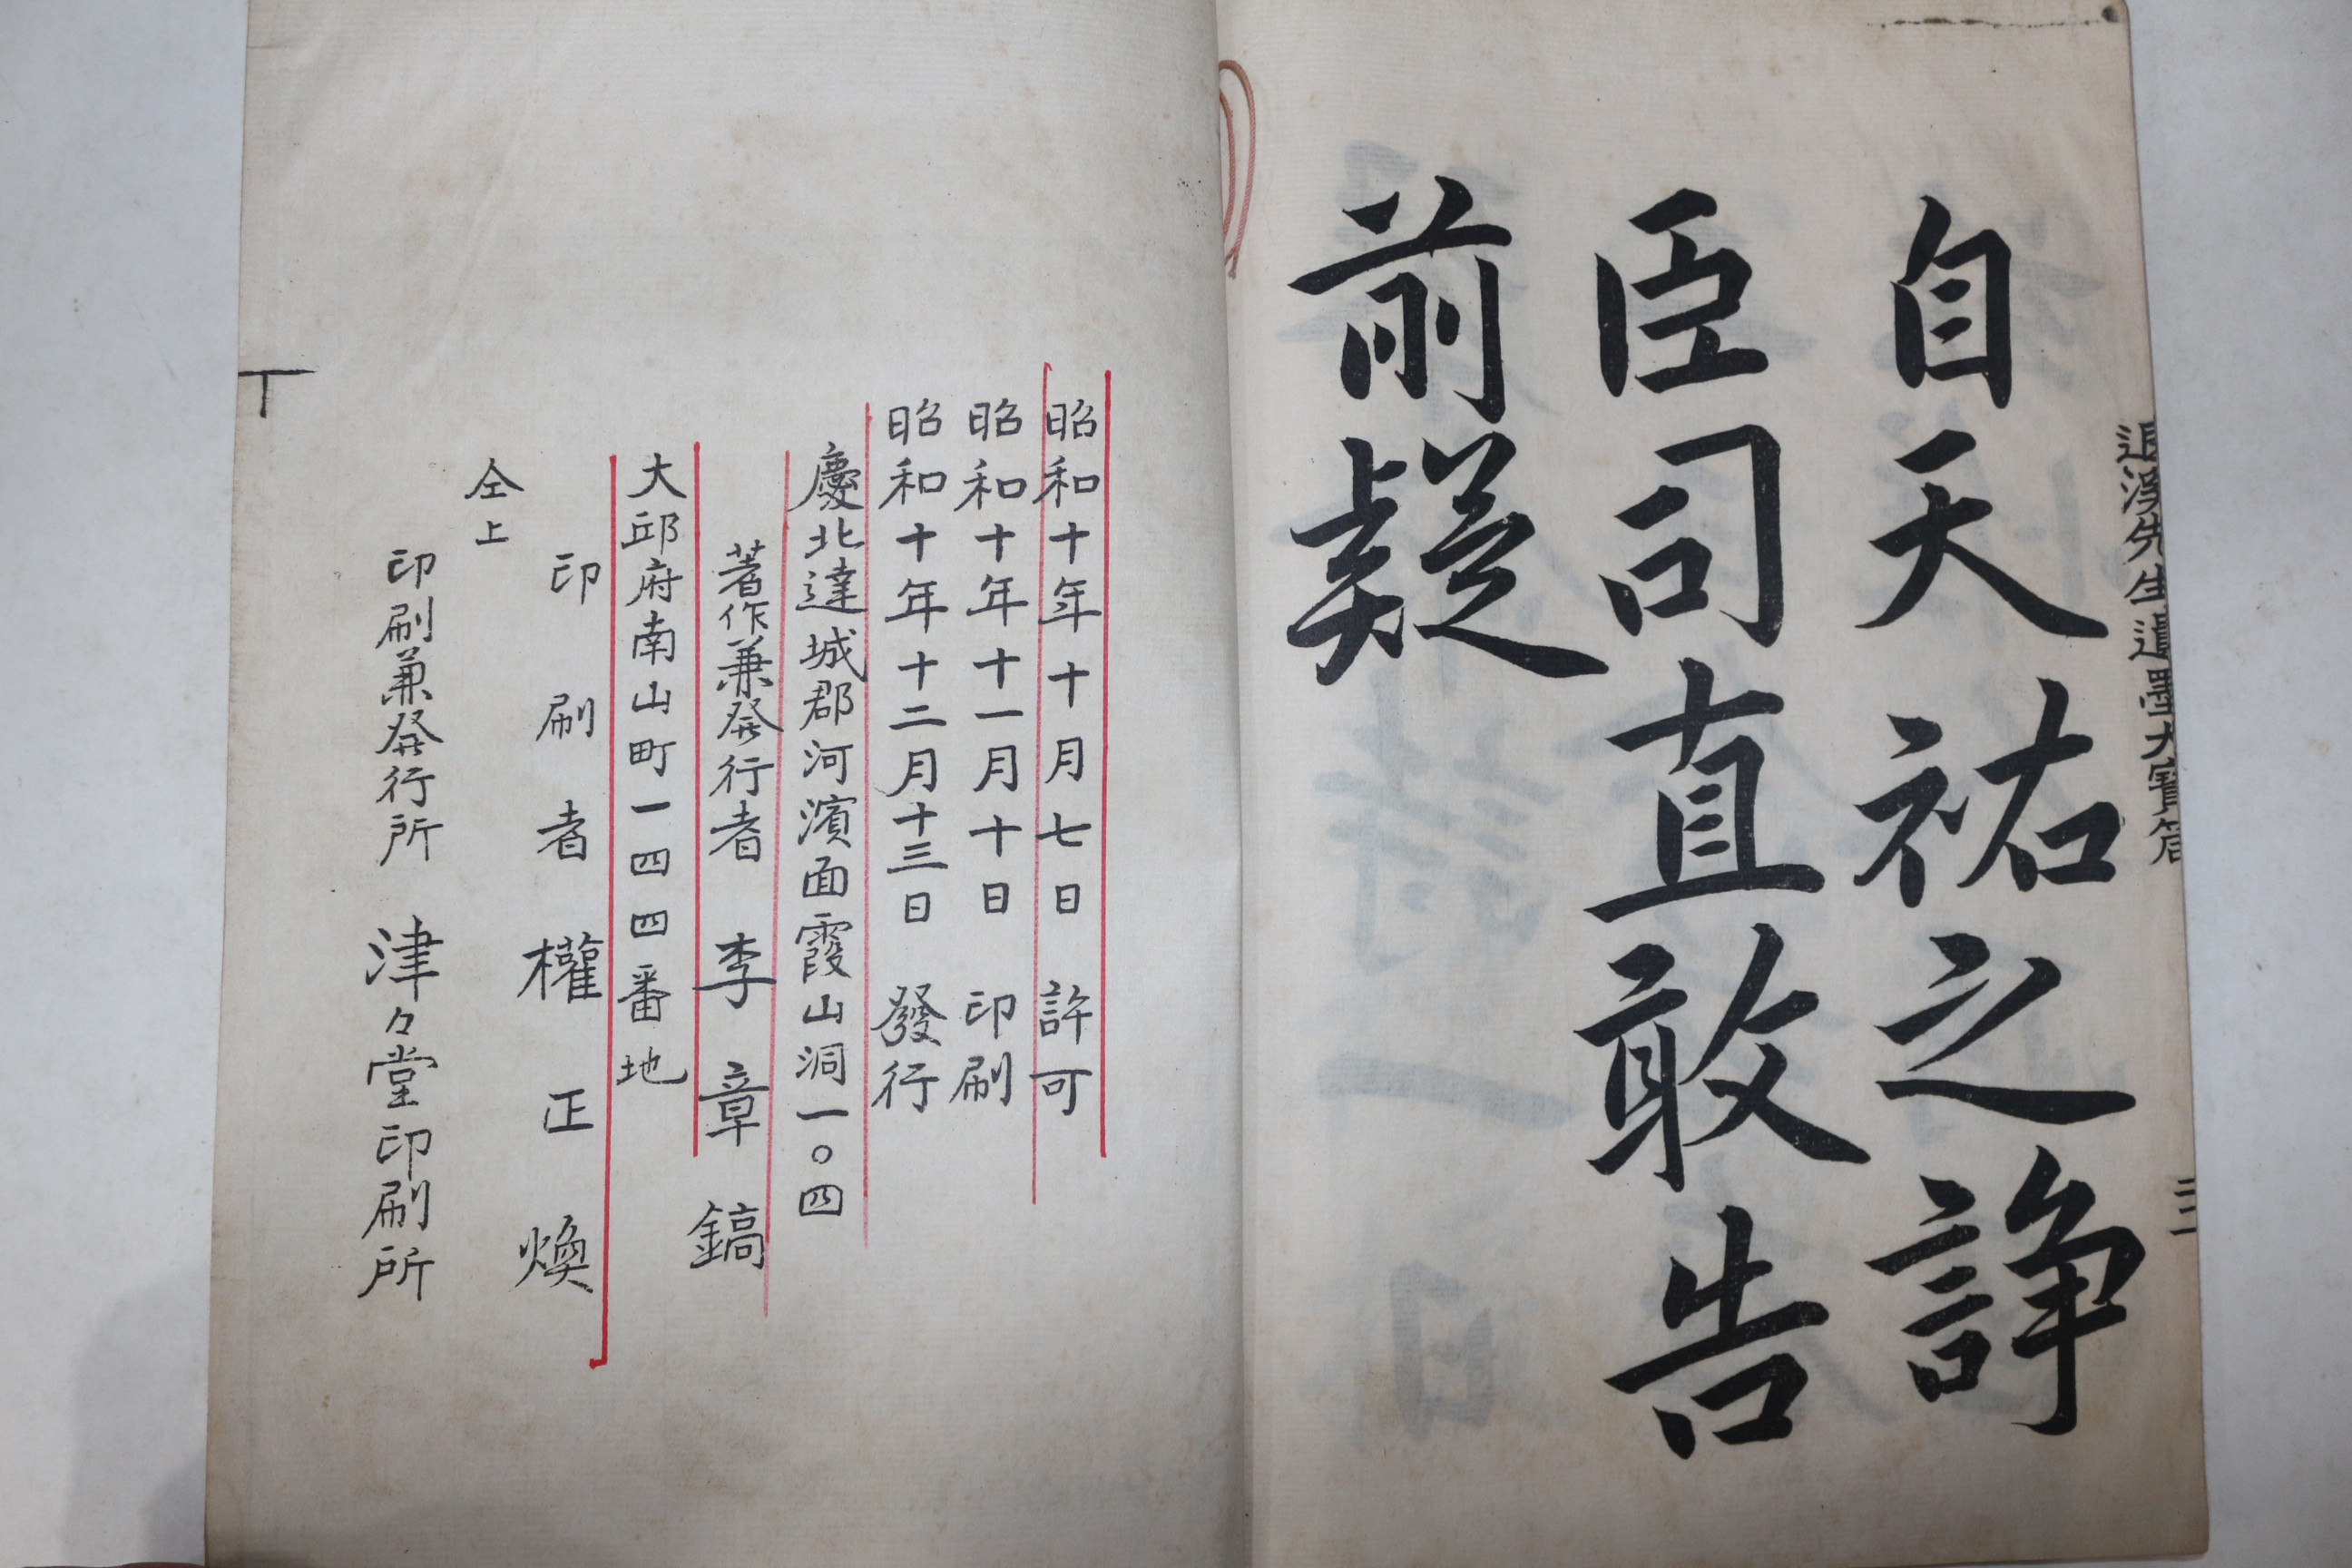 退溪先生遺墨大寶箴
自天祐之諍
臣司直敢告
前疑
昭和十年十月七日 許可
昭和十年十一月十日 印刷
昭和十年十二月十三日 發行
慶北達城郡河濱面霞山洞一〇四
著作兼発行者 李章鎬
大邱府南山町一四四番地
印刷者 權正煥
仝上
印刷兼発行所 津々堂印刷所